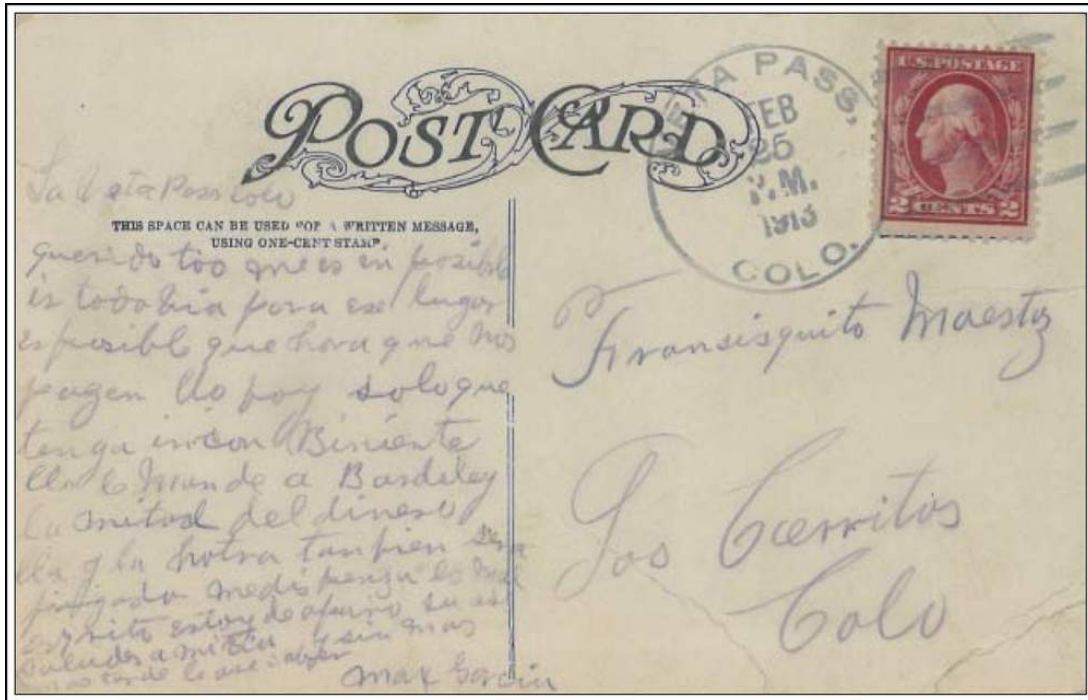 POST CARD
La Veta Pass Colo
THIS SPACE CAN BE USED FOR A WRITTEN MESSAGE,
USING ONE-CENT STAMP.
querido tio me es en posible
ir todobia para ese lugar
es posible que hora que nos
pagen llo boy solo que
tenga incon Biniente
llo le mande a
la mitad del dinero
lla y la hotra tanbien sera
pagada
escrito estoy de apuro su
saludes a mi tia y sin mas
Max Garcia
TA PASS,
FEB
25
P.M.
1913
COLO.
U.S. POSTAGE
2 CENTS 2
Fransisquito Maestas
Los Cerritos
Colo